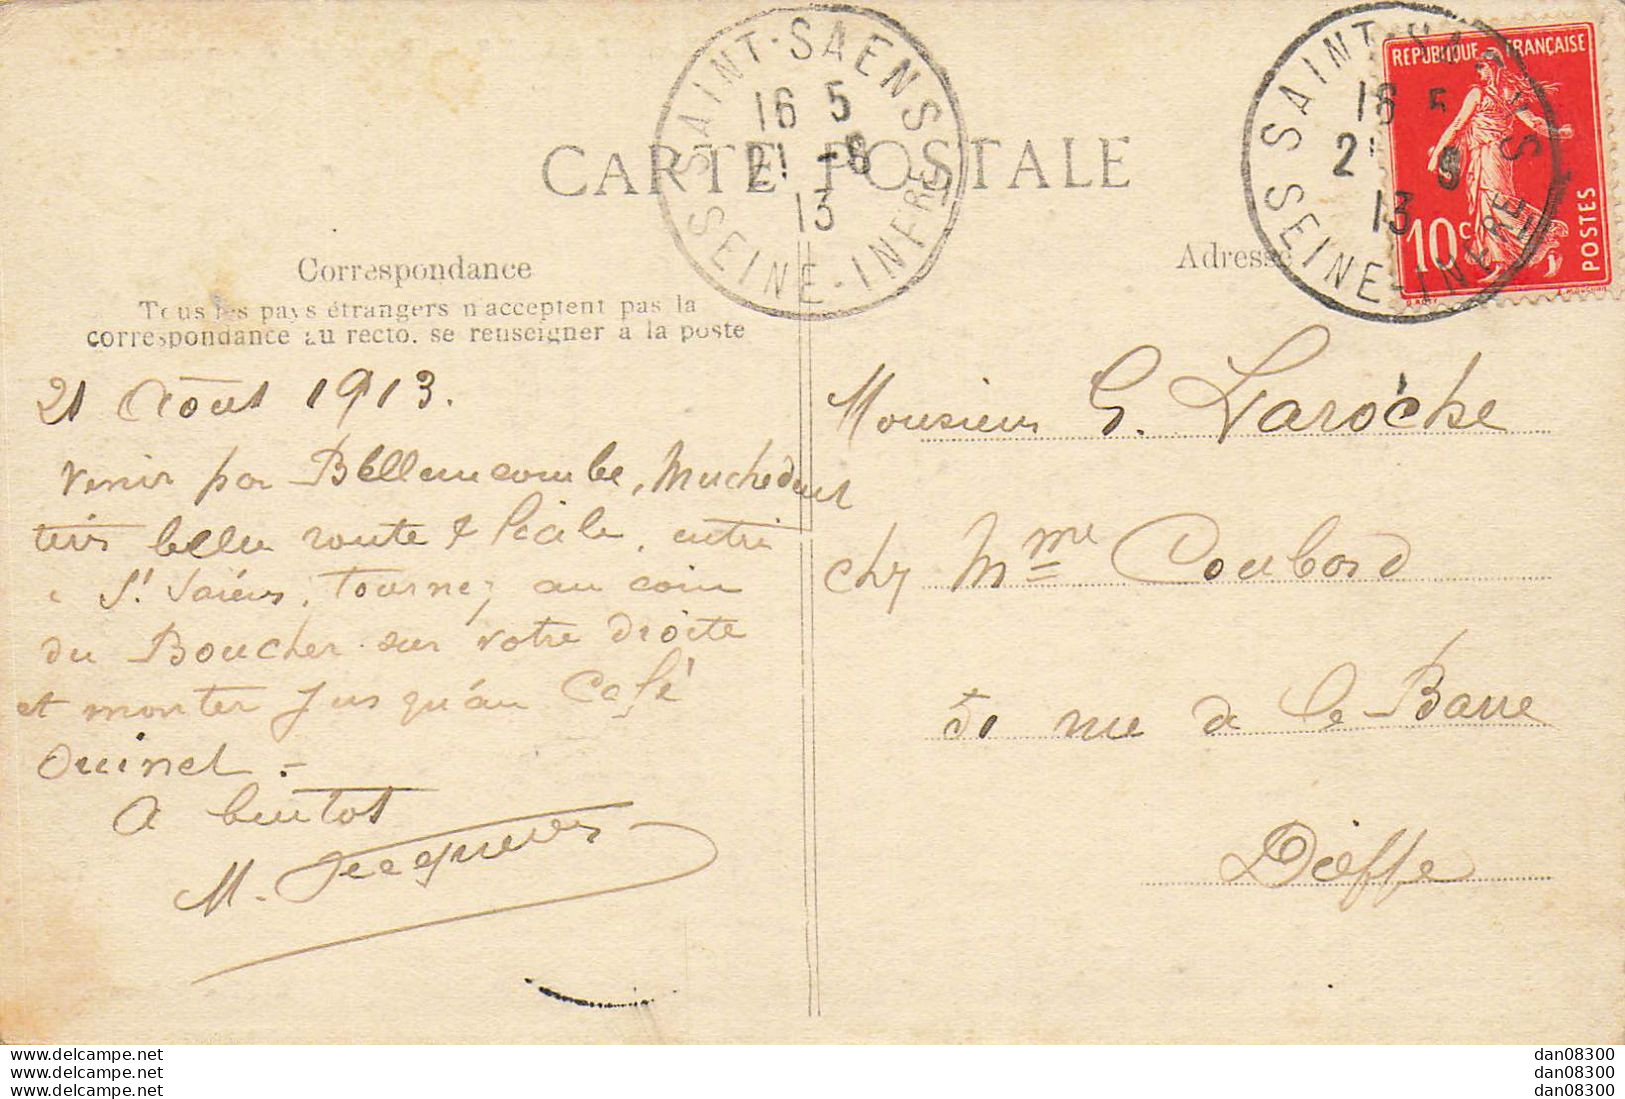 CARTE POSTALE
SAINT-SAENS
16 5
21 -8
13
SEINE-INFRE
SAINT-SAENS
16 5
21 8
13
SEINE-INFRE
REPUBLIQUE FRANÇAISE
10c
POSTES
Correspondance
Tous les pays étrangers n'acceptent pas la
correspondance au recto. se renseigner à la poste
Adresse
21 Août 1913.
Venir par Bellencombre, Muchedent
très belle route & facile, entrée
à St Saëns, tournez au coin
du Boucher sur votre droite
et monter jusqu'au Café
Quinel.-
A bientôt
M. Jacques
Monsieur G. Laroche
chez Mme Coubord
51 rue de la Barre
Dieppe
www.delcampe.net
www.delcampe.net
www.delcampe.net
dan08300
dan08300
dan08300